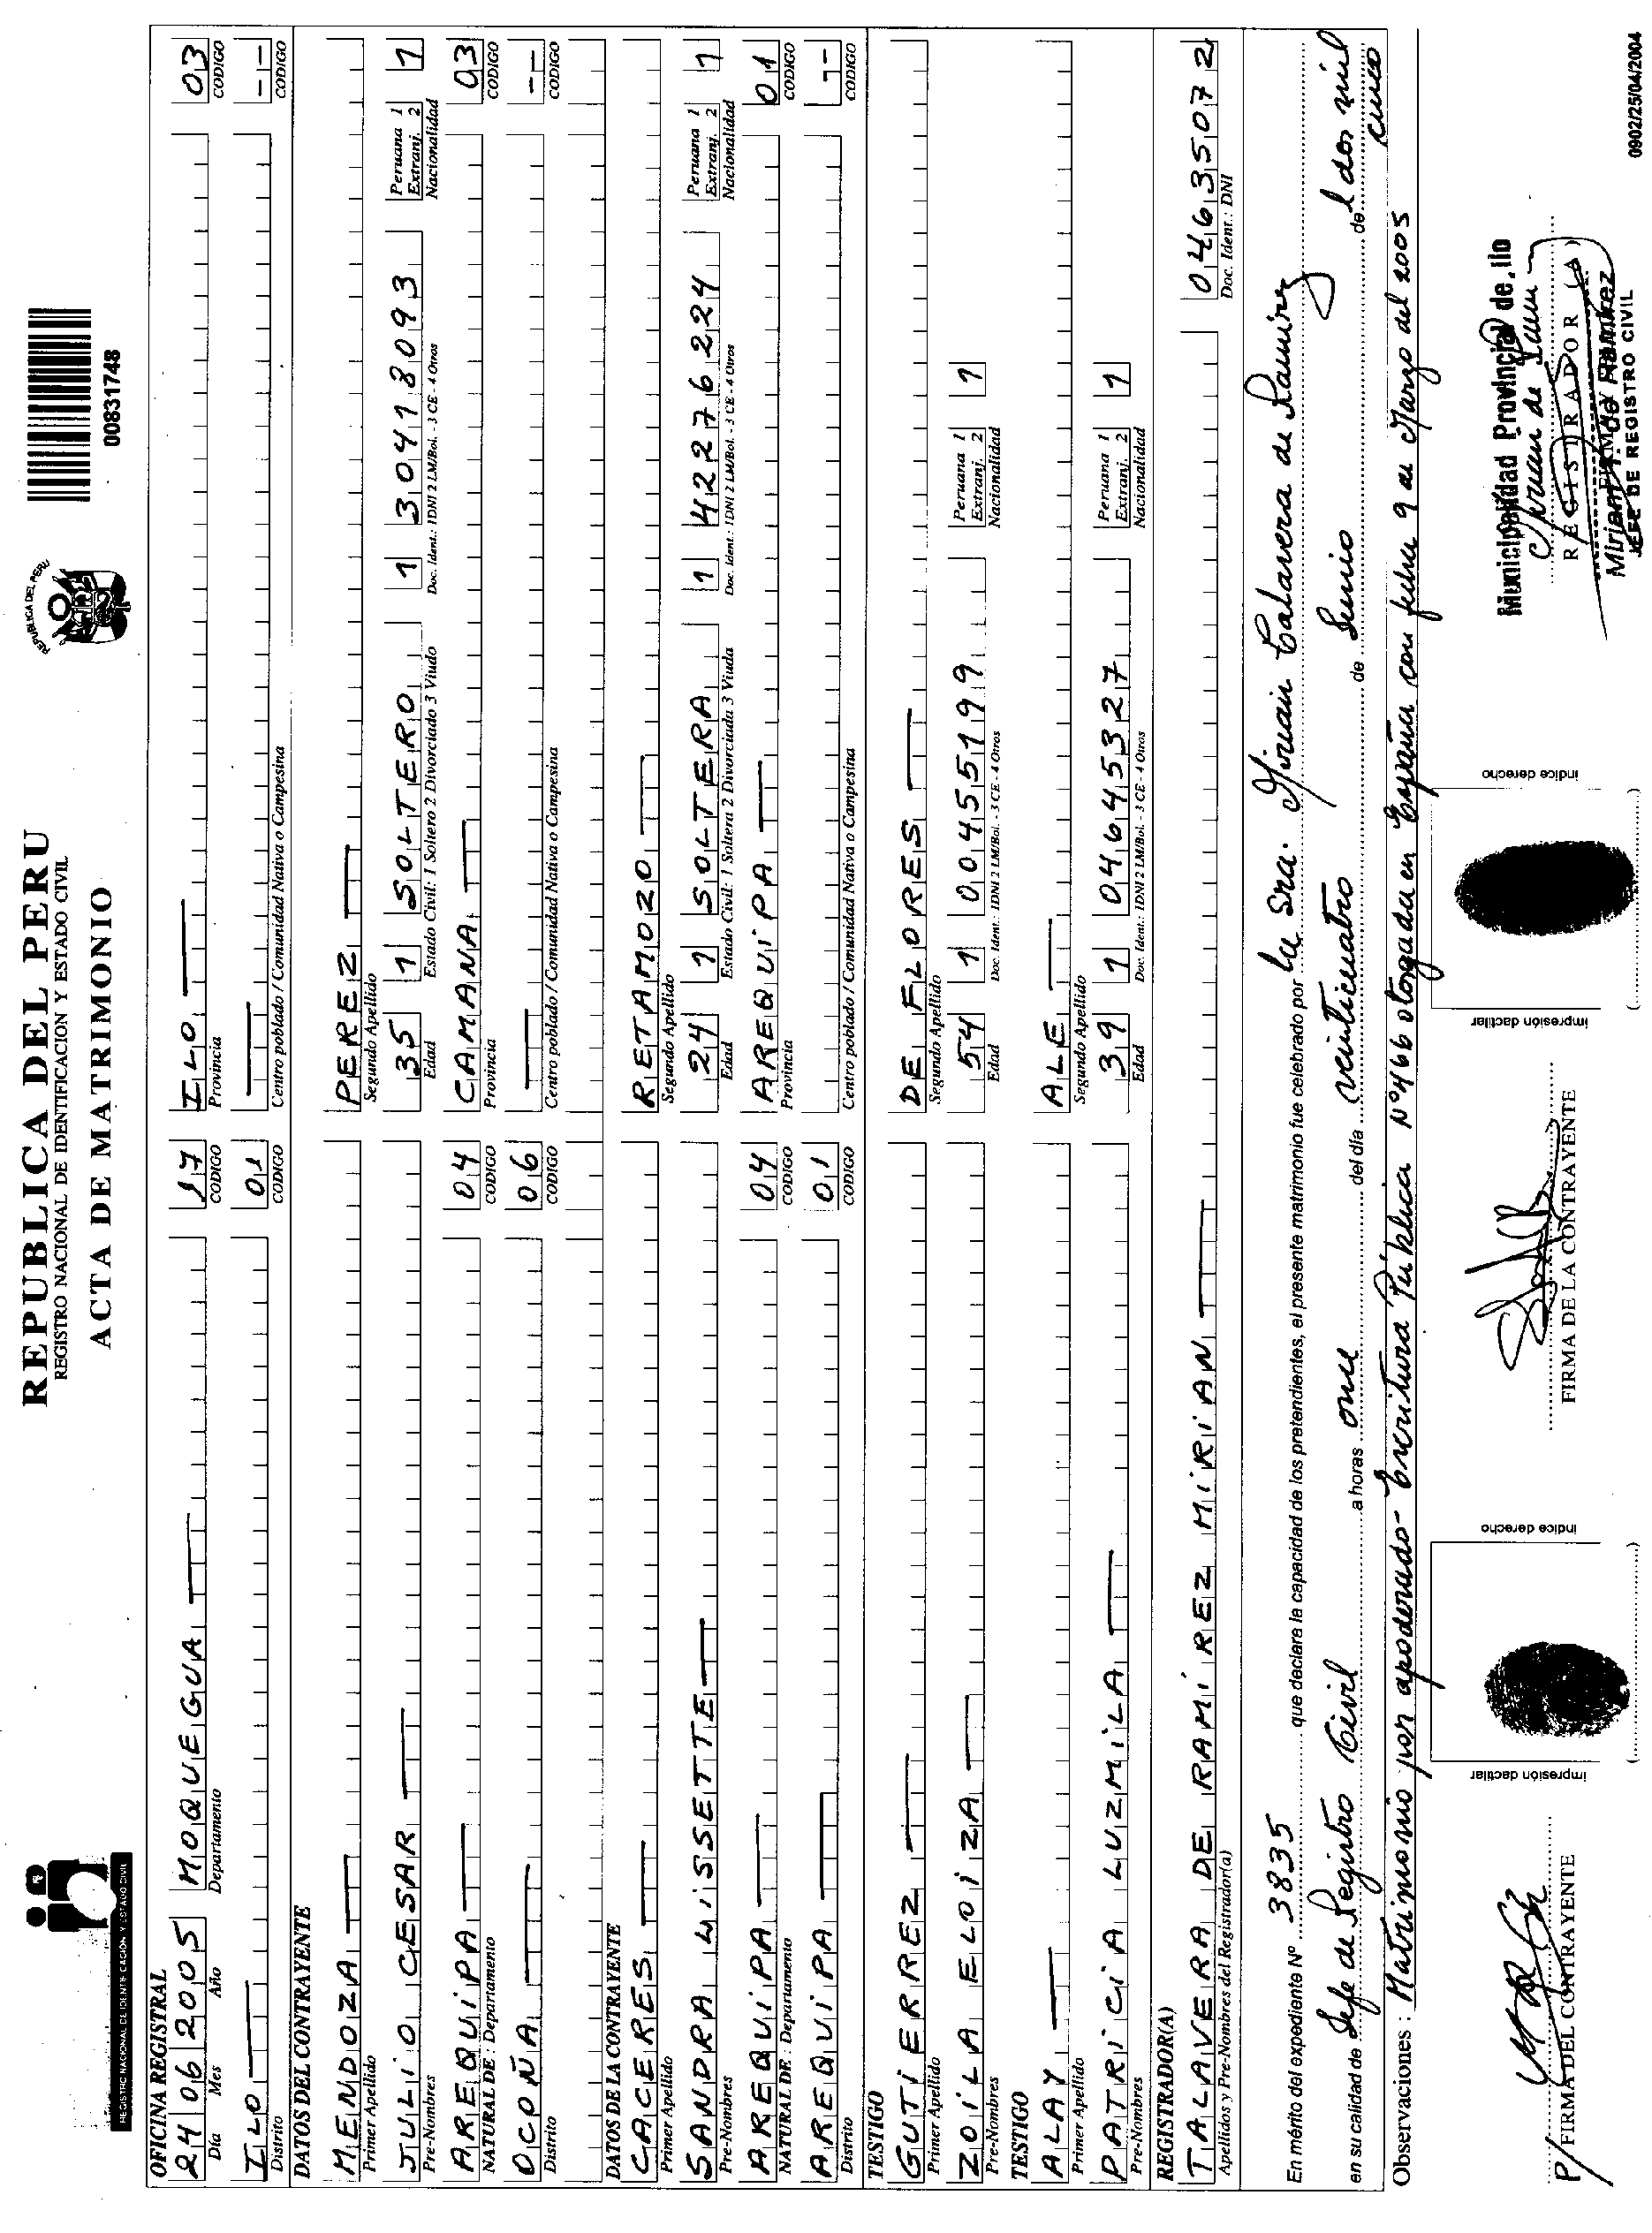 REGISTRO NACIONAL DE IDENTIFICACION Y ESTADO CIVIL
REPUBLICA DEL PERU
REGISTRO NACIONAL DE IDENTIFICACION Y ESTADO CIVIL
ACTA DE MATRIMONIO
REPUBLICA DEL PERU
00831748
OFICINA REGISTRAL
24 06 2005 MOQUEGUA 17 ILO 03
Día Mes Año Departamento CODIGO Provincia CODIGO
ILO 01
Distrito CODIGO Centro poblado / Comunidad Nativa o Campesina CODIGO
DATOS DEL CONTRAYENTE
MENDOZA PEREZ
Primer Apellido Segundo Apellido
JULIO CESAR 35 1 SOLTERO 1 30418093 Peruana 1 Extranj. 2 1
Pre-Nombres Edad Estado Civil: 1 Soltero 2 Divorciado 3 Viudo Doc. Ident.: 1DNI 2 LM/Bol. - 3 CE - 4 Otros Nacionalidad
AREQUIPA 04 CAMANA 03
NATURAL DE : Departamento CODIGO Provincia CODIGO
OCOÑA 06
Distrito CODIGO Centro poblado / Comunidad Nativa o Campesina CODIGO
DATOS DE LA CONTRAYENTE
CACERES RETAMOZO
Primer Apellido Segundo Apellido
SANDRA LISSETTE 24 1 SOLTERA 1 42276224 Peruana 1 Extranj. 2 1
Pre-Nombres Edad Estado Civil: 1 Soltera 2 Divorciada 3 Viuda Doc. Ident.: 1DNI 2 LM/Bol. - 3 CE - 4 Otros Nacionalidad
AREQUIPA 04 AREQUIPA 01
NATURAL DE : Departamento CODIGO Provincia CODIGO
AREQUIPA 01
Distrito CODIGO Centro poblado / Comunidad Nativa o Campesina CODIGO
TESTIGO
GUTIERREZ DE FLORES
Primer Apellido Segundo Apellido
ZOILA ELOIZA 54 1 00455199 Peruana 1 Extranj. 2 1
Pre-Nombres Edad Doc. Ident.: 1DNI 2 LM/Bol. - 3 CE - 4 Otros Nacionalidad
TESTIGO
ALAY ALE
Primer Apellido Segundo Apellido
PATRICIA LUZMILA 39 1 04645327 Peruana 1 Extranj. 2 1
Pre-Nombres Edad Doc. Ident.: 1DNI 2 LM/Bol. - 3 CE - 4 Otros Nacionalidad
REGISTRADOR(A)
TALAVERA DE RAMIREZ MIRIAN 04635072
Apellidos y Pre-Nombres del Registrador(a) Doc. Ident.: DNI
En mérito del expediente Nº 3835 que declara la capacidad de los pretendientes, el presente matrimonio fue celebrado por la Sra. Mirian Talavera de Ramirez
en su calidad de Jefe de Registro Civil a horas once del día veinticuatro de Junio del dos mil cinco
Observaciones : Matrimonio por apoderado- Escritura Pública Nº 466 otorgada en España con fecha 9 de Marzo del 2005
impresión dactilar índice derecho
impresión dactilar índice derecho
P/ FIRMA DEL CONTRAYENTE
FIRMA DE LA CONTRAYENTE
Municipalidad Provincial de Ilo
REGISTRADOR (A)
FIRMA Y
Mirian T. de Ramirez
JEFE DE REGISTRO CIVIL
0902/25/04/2004